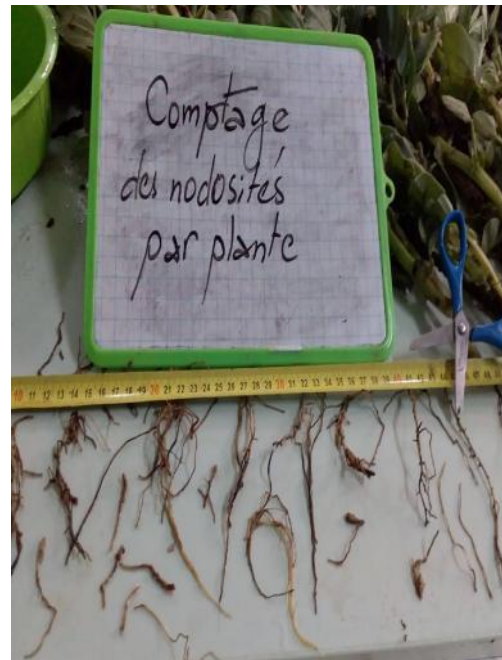 Comptage
des nodosités
par plante
10 11 12 13 14 15 16 17 18 19 20 21 22 23 24 25 26 27 28 29 30 31 32 33 34 35 36 37 38 39 40 41 42 43